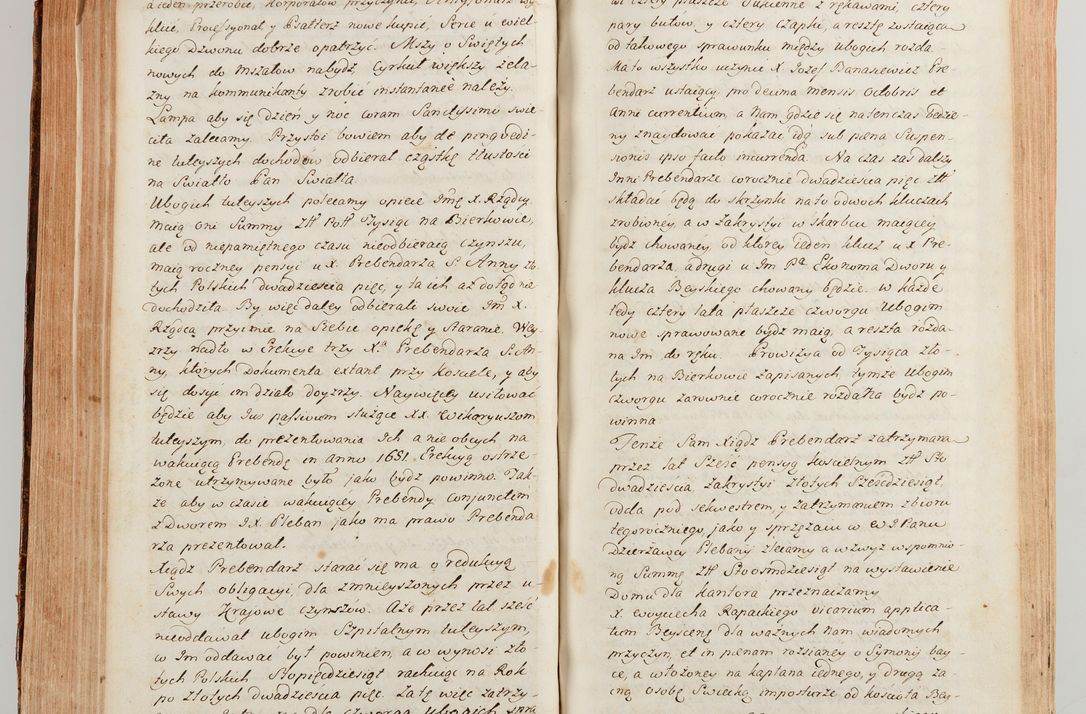 a ieden przerobić, korporałow przyczynić, Antyfonarz wy
kleić, Processyonał y Psałterz nowe kupić, Serce u wiel-
kiego Dzwonu dobrze opatrzyć. Mszy o Swiętych
nowych do Mszałow nabydź, Cyrkuł większy żela-
zny na kommunikanty zrobić instantaneè należy.
Lampa aby się dzień y noc coram Sanctissimo świe-
ciła zalecamy. Przystoi bowiem aby de pingvedi-
ne tuteyszych dochodów odbierał cząstkę tłustości
na Swiatło Pan Swiatła.
Ubogich tuteyszych polecamy opiece Jmę X. Rządcy.
Maią oni Summy Złł Poll Tysiąc na Bierkowie,
ale od niepamiętnego czasu nieodbieraią czynszu,
maią roczney pensyi u X. Prebendarza S. Anny zło-
tych Polskich dwadziescia pięć, y ta ich aż dotąd nie
dochodziła. By więc daley odbierali swoie Jmć X.
Rządca przyimie na Siebie opiekę y Staranie. Wey-
zrzy nadto w Erekcye trzy Xa Prebendarza S. An-
ny, ktorych Dokumenta extant przy kościele, y aby
się dosyć im działo doyzrzy. Naywięcey usiłować
będzie aby Jus passivum służące XX. Wikaryuszom
tuteyszym, do prezentowania Ich a nie obcych na
wakuiącą Prebendę in Anno 1651. Erekcyą ostrze-
żone utrzymywane było jako bydź powinno. Tak-
że aby w czasie wakuiącey Prebendy conjunctim
z Dworem J.X. Pleban jako ma prawo Prebenda
rza prezentował.
Xiądz Prebendarz starać się ma o redukcyą
Swych obligacyi, dla zmnieyszonych przez u-
stawy Krajowe czynszów. Aże przez lat sześć
nieoddawał ubogim Szpitalnym tuteyszym,
co Im oddawać był powinien, a co wynosi zło-
tych Polskich Stopięćdziesiąt rachuiąc na Rok
po złotych dwadziescia pięć. Tę więc zatrzy-
czworga Ubogich spra
wi cztery płaszcze Sukienne z rękawami, cztery
pary butow, y cztery czapki, a resztę zostaiąca
od takowego sprawunku między ubogich rozda.
Ma to wszystko uczynić X Jozef Banasiewicz Pre-
bendarz ustaiący, pro decima mensis Octobris et
anni currentium, a Nam gdzie się natenczas będzie-
my znaydować pokazać idq sub pœna Suspen-
sionis ipso facto incurrenda. Na czas zaś dalszy
Inni Prebendarze corocznie dwadziescia pięć Złł
składać będą do skrzynki na to o dwoch kluczach
zrobioney, a w Zakrystyi w Skarbcu maiącey
bydź chowaney, od ktorey ieden klucz u X Pre-
bendarza, a drugi u Jm Pa Ekonoma Dworu y
klucza Beyskiego chowany będzie. w każde
tedy cztery lata płaszcze czworgu Ubogim
nowe sprawowane bydź maią, a reszta rozda-
na Im do ręku. Prowizya od Tysiąca Zło-
tych na Bierkowie zapisanych tymże Ubogim
czworgu zarownie corocznie rozdatka bydź po-
winna.
Tenże Sam Xiądz Prebendarz zatrzymaną
przez lat Sześć pensyą kościelnym Złł Sto
dwadziescia, zakrystyi Złotych Sześćdziesiąt,
odda pod sekwestrem, y zatrzymaniem zbioru
tegorocznego, jako y sprzężaiu co W J Panu
Dzierżawcy Plebanij zlecamy a wzwyż wspomnio-
ną Summę Złł Stoosmdziesiąt na wystawienie
Domu dla kantora przeznaczamy.
X. Woyciecha Rapackiego vicarium applica-
tum Beyscenę dla ważnych Nam wiadomych
przyczyn, et in pœnam rozsianey o Symonij bay-
ce, a włożoney na kapłana iednego, y drugą za-
cną osobę Swiecką imposturze od kościoła Bey-